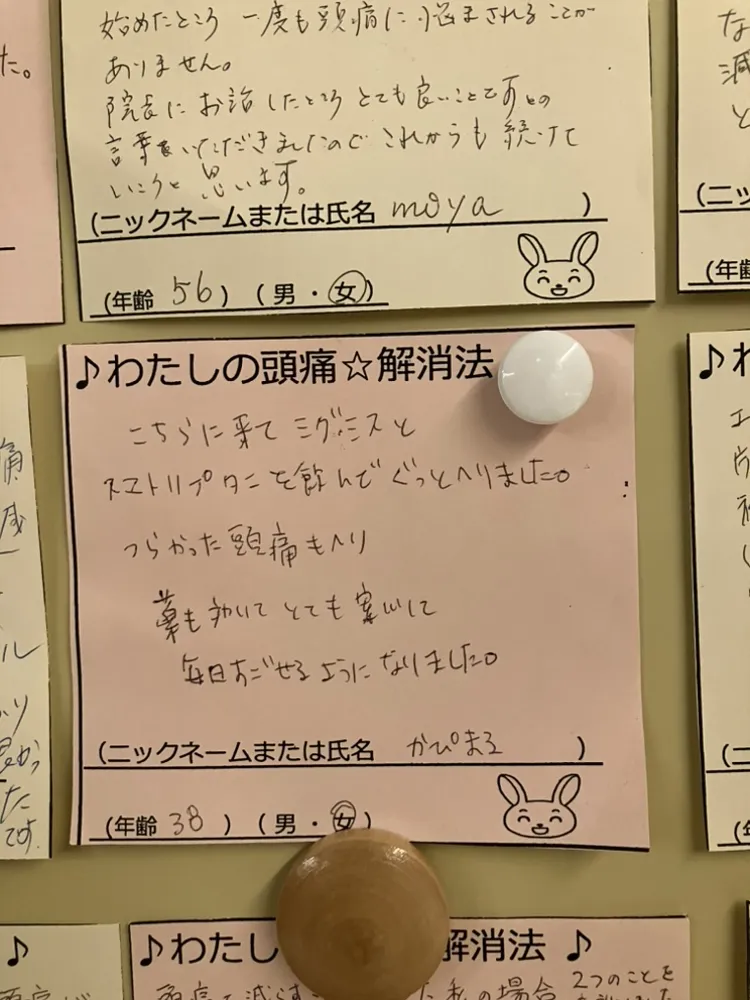 始めたところ 一度も頭痛に悩まされることが
ありません。
院長にお話したところとても良いことですとの
言葉をいただきましたのでこれからも続けて
いこうと思います。
(ニックネームまたは氏名 moya )
(年齢 56 ) ( 男 ・ 女 )
♪わたしの頭痛☆解消法
こちらに来て ミグシスと
スマトリプタンを飲んで ぐっとへりました。
つらかった頭痛もへり
薬も効いて とても安心して
毎日すごせるようになりました。
(ニックネームまたは氏名 かぴまる )
(年齢 38 ) ( 男 ・ 女 )
♪わたし
解消法 ♪
私の場合 2つのことを
た。
(ニッ
(年齢
♪わ
(ニッ
です。
♪